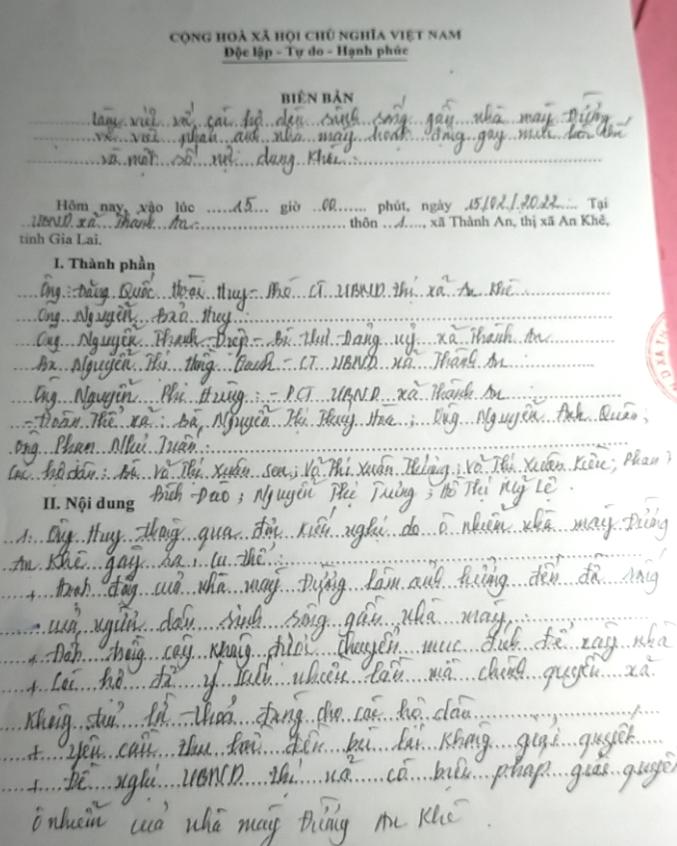 CỘNG HOÀ XÃ HỘI CHỦ NGHĨA VIỆT NAM
Độc lập - Tự do - Hạnh phúc
BIÊN BẢN
làm việc với các hộ dân sinh sống gần nhà máy Đường
về việc phản ánh nhà máy hoạt động gây mùi hôi
và một số nội dung khác:
Hôm nay, vào lúc 15 giờ 00 phút, ngày 15/02/2022 Tại
UBND xã Thành An thôn 1, xã Thành An, thị xã An Khê,
tỉnh Gia Lai.
I. Thành phần
Ông: Đặng Quốc Hoài Huy - Phó CT UBND thị xã An Khê
Ông Nguyễn Bảo Huy
Ông Nguyễn Thanh Điệp - Bí thư Đảng uỷ xã Thành An
Bà Nguyễn Thị Hồng - CT UBND xã Thành An
Ông Nguyễn Phi Hùng: - PCT UBND xã Thành An
- Đoàn thể xã: Bà, Nguyễn Thị Thuý Hoa; Ông Nguyễn Anh Quân;
Ông Phan Như Tuấn:
Các hộ dân: Bà Võ Thị Xuân Sen; Võ Thị Xuân Thắng; Võ Thị Xuân Kiều; Phan T
Bích Đào; Nguyễn Thị Trưng; Hồ Thị Mỹ Lệ.
II. Nội dung
1. Ông Huy thông qua đơn kiến nghị do ô nhiễm nhà máy Đường
An Khê gây ra, cụ thể:
+ hoạt động của nhà máy Đường làm ảnh hưởng đến đời sống
của người dân sinh sống gần nhà máy:
+ Đất trồng cây không được chuyển mục đích để xây nhà
+ Các hộ đã ý kiến nhiều lần mà chính quyền xã
không thoả đáng cho các hộ dân
+ yêu cầu thu hồi đền bù lại không giải quyết
+ Đề nghị UBND thị xã có biện pháp giải quyết
ô nhiễm của nhà máy Đường An Khê.